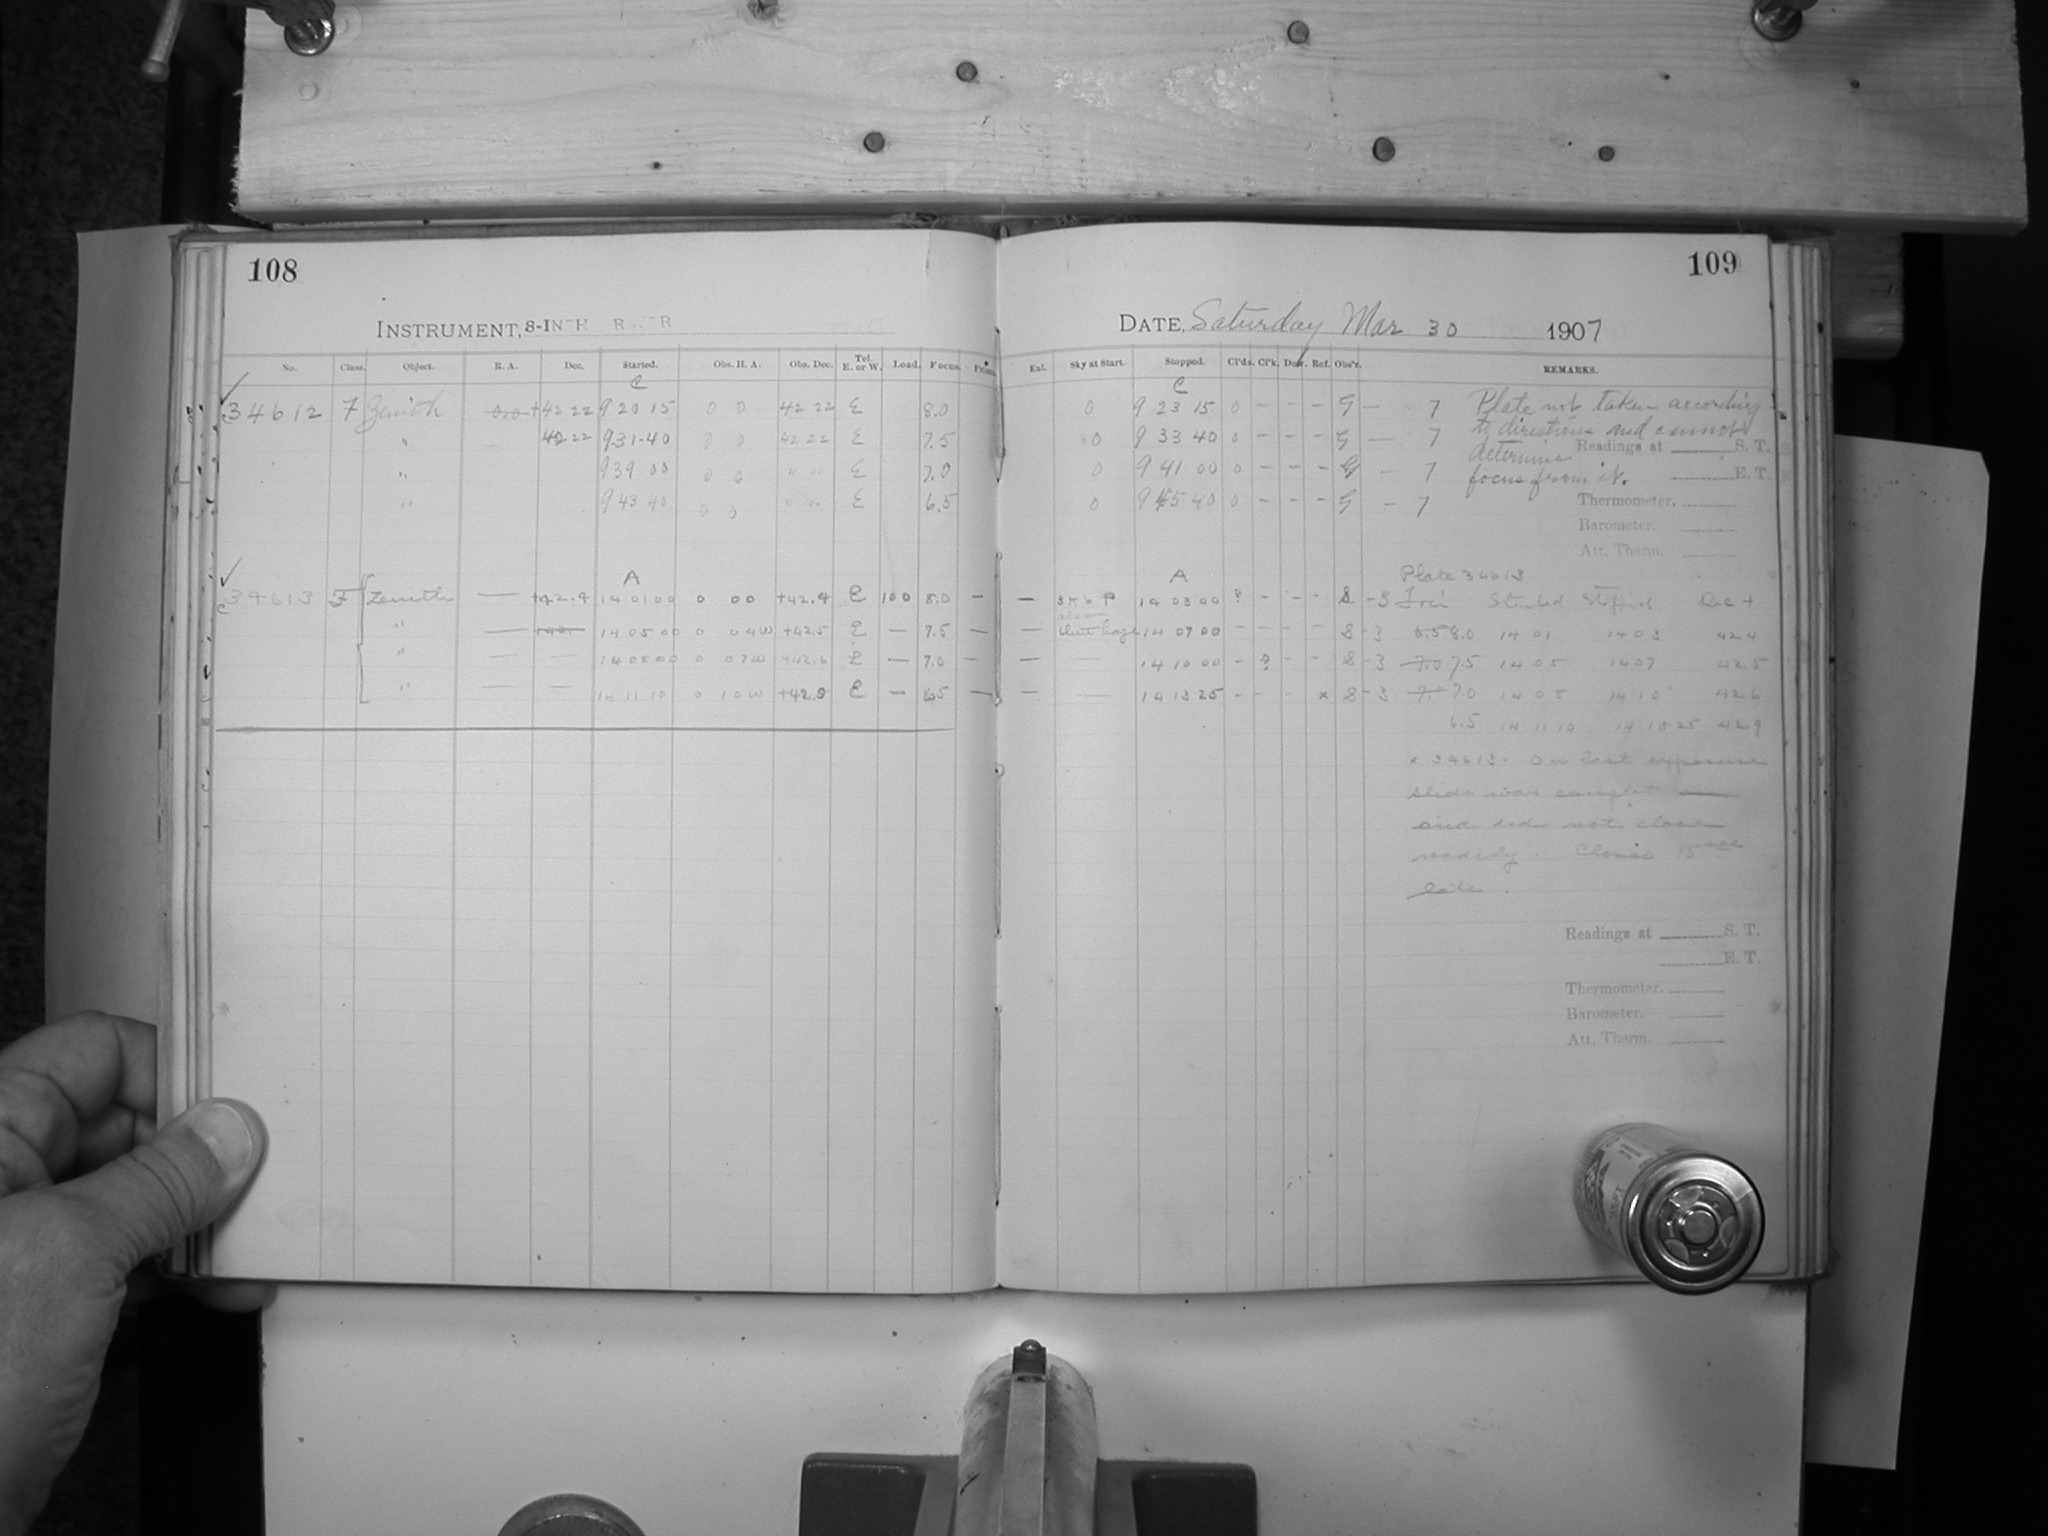 108
INSTRUMENT, 8-IN H R R
No. Class. Object. R. A. Dec. Started. Obs. H. A. Obs. Dec. Tel. E. or W. Load. Focus.
C
34612 F Zenith 0.0 +42 22 9 20 15 0 0 42 22 E 8.0
" 42 22 9 31 40 0 0 42 22 E 7.5
" 9 39 00 0 0 " " E 7.0
" 9 43 40 0 0 " " E 6.5
A
C 34613 F Zenith — +42.4 14 01 00 0 00 +42.4 E 100 8.0 —
" — 14 05 00 0 04W +42.5 E — 7.5 —
" — — 14 08 00 0 07W +42.6 E — 7.0 —
" — — 14 11 10 0 10W +42.9 E — 6.5 —
109
DATE, Saturday Mar 30 1907
Ext. Sky at Start. Stopped. Cl'ds. Cl'k. Dew. Ref. Obs'r. REMARKS.
C
0 9 23 15 0 - - - G - 7 Plate not taken according
0 9 33 40 0 - - - G - 7 to directions and cannot
Readings at S. T.
0 9 41 00 0 - - - G - 7 determine
E. T.
0 9 45 40 0 - - - G - 7 focus from it.
Thermometer.
Barometer.
Att. Therm.
A Plate 34613
— 14 03 00 ? - - - S - 3 Foci Started Stopped Dec +
— haze 14 07 00 - - - - S - 3 8.0 14 01 14 03 42.4
— — 14 10 00 - ? - - S - 3 7.0 7.5 14 05 14 07 42.5
— — 14 13 25 - - - x S - 3 7.0 14 08 14 10 42.6
6.5 14 11 10 14 13 25 42.9
x 34613 - On last exposure
slide was caught
and did not close
readily. Close 15 sec
late.
Readings at S. T.
E. T.
Thermometer.
Barometer.
Att. Therm.